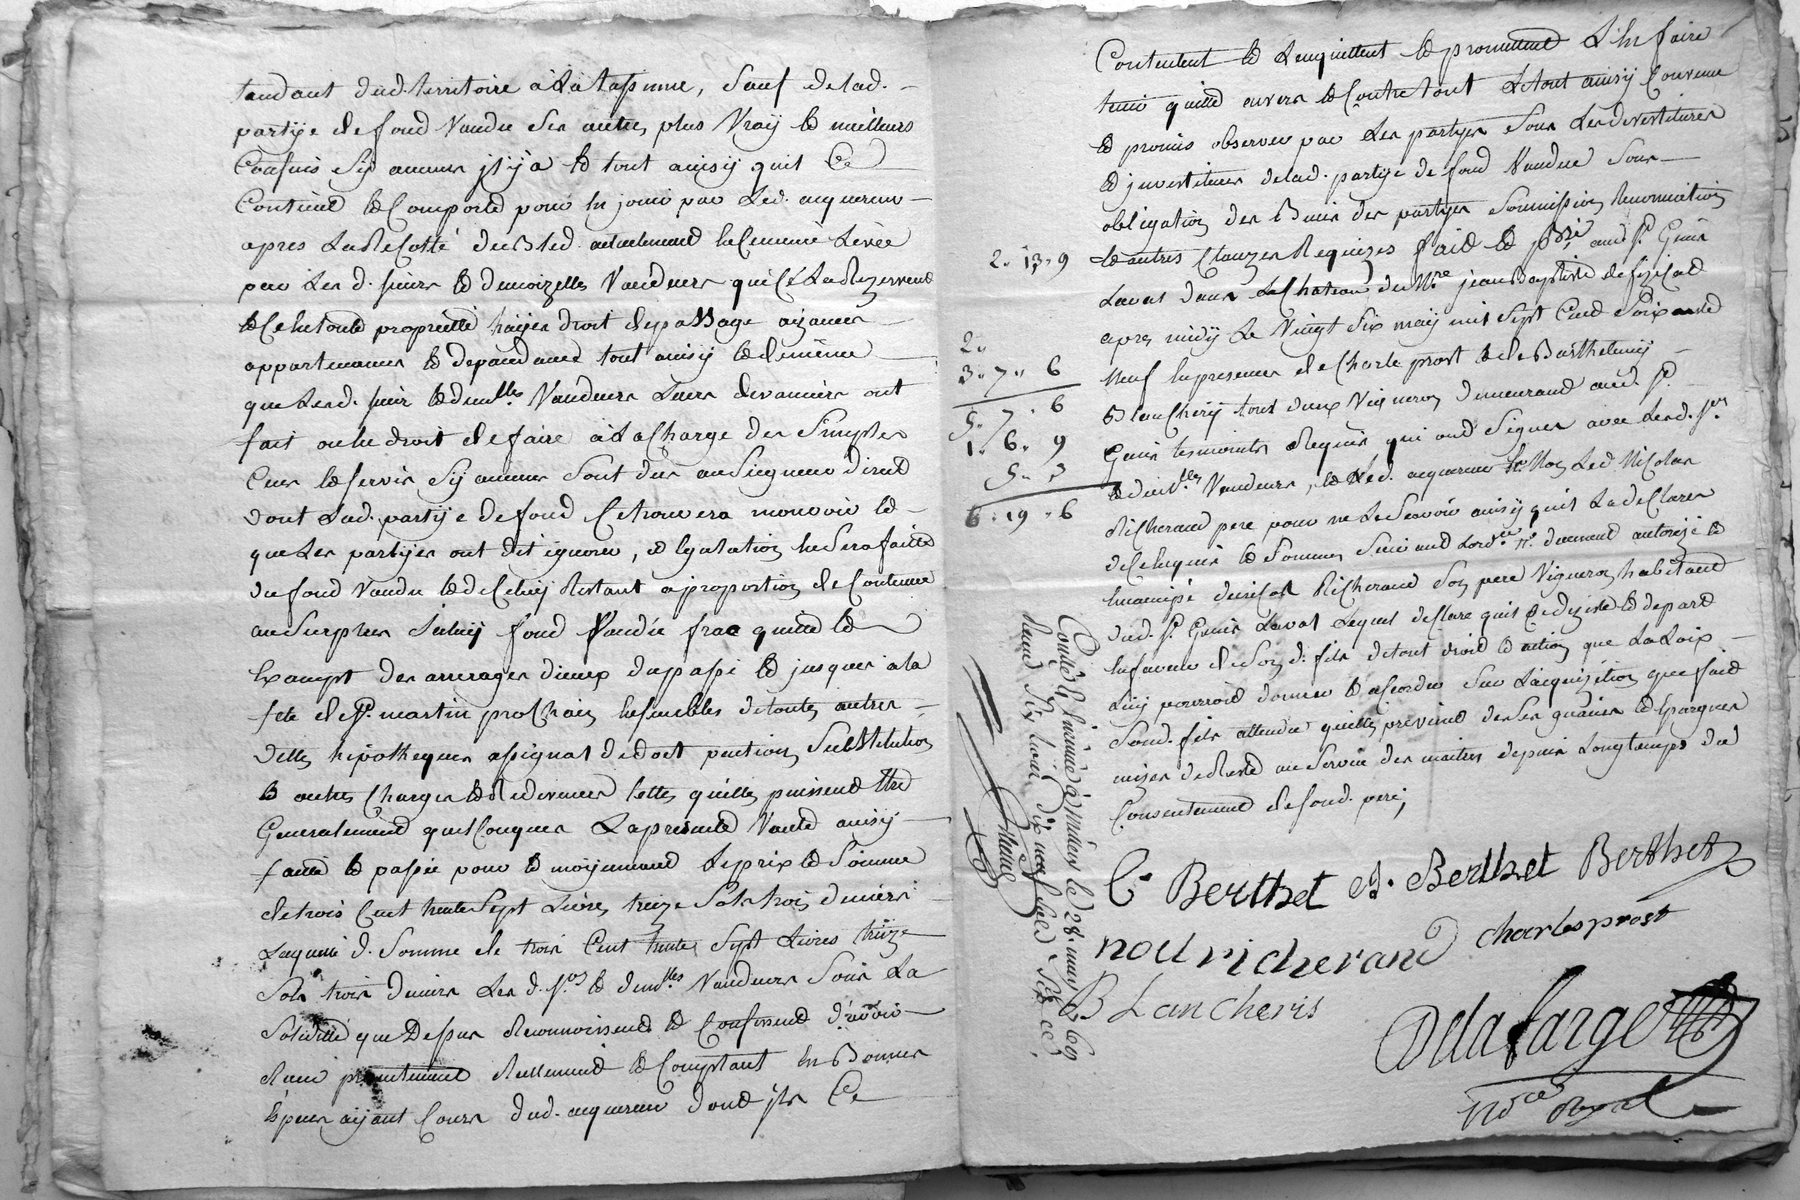 tendant dud. territoire à la tassinne, sauf delad. -
partÿe de fond vandu ses autres plus vraÿ et meilleurs
Confins sÿ aucuns jl ÿ a et tout ainsÿ quil se
Contient et Comporte pour en jouir par led. acquereur -
apres la Recolte du Bled. actuellement Ensemencé Levée
par Les d. sieurs et demoizelles Vandeurs qui se La Rezervent
et ce en toute proprieté haÿes droit de passage aizances
appartenances et depandances tout ainsÿ et de même
que Lesd. sieur et dlles Vandeurs Leurs devanciers ont
fait ou eu droit de faire à La Charge des Simples
Cens et servis sÿ aucuns sont dus au Seigneur direct
dont Lad. partÿe de fond se trouvera mouvoir et -
que Les partÿes ont dit ignorer, et Egalation En sera faitte
du fond vandu et de Celuÿ Restant a proportion de Contenue
au Surplus Iceluÿ fond Vandu franc quitte et
Exampt des arrerages d'iceux du passé et jusques a la
fete de St. martin prochain Ensembles de toutes autres -
dettes hipotheques assignat de dot pention, substitution
et autres Charges et Redevances telles quelles puissent Etre
Generalement quelconques La presente Vante ainsÿ -
faitte et passée pour et moÿennant Le prix et Somme
de trois Cent trente Sept Livres treize Sols trois deniers
Laquelle d. Somme de trois Cent trente Sept Livres treize
Sols trois deniers Les d. Srs. et dlles Vandeurs Sous La
Solidité que Dessus Reconnoissent et Confessent d'avoir -
Receu presentement Réellement et Comptant En Bonnes
Espèces aÿant Cours dud. acquereur dont jls se
Contentent et L'en quittent et promettent L'En faire
tenir quitte envers et Contre tout Le tout ainsÿ Convenu
et promis observer par Les partÿes Sous Les devestitures
et jnvestitures delad. partÿe de fond Vandue Sous -
obligation des Biens des partÿes Soumission Renonciation
et autres Clauzes Requizes fait et passé aud. St. Genis
Laval dans Le Chateau du Mre. jean Baptiste de fizicat
apres midÿ Le Vingt Six maÿ mil Sept Cent Soixante
Neuf En presence de Charle prost et de Barthelemÿ -
Blancherÿ tous deux Vignerons demeurant aud. St.
Genis temoints Requis qui ont Signés avec Lesd. Srs
et dlles. Vandeurs, et Led. acquereur et Non Led Nicolas
Richerand pere pour ne Le Scavoir ainsÿ quil La declaré
de ce Enquis et Sommé Suivant Lordce. dument autorizé et
Emancipé dud. Nicolas Richerand Son pere Vigneron habitant
dud. St. Genis Laval Lequel declare quil se deziste et depart
En faveur de Son d. fils de tout droit et action que La Loix -
Luÿ pourroit donner et accorder Sur L'acquizition que fait
Sond. fils attendu quelle provient de Ses guains et Epargnes
mizes de Reste au Service des maitres depuis Longtemps du
Consentement de Sond. pere;
2. 13. 9
2.
3. 7. 6
5. 7. 6
1. 6. 9
5. 3
6. 19. 6
Controllé & Insinué à St. Genis le 28. may 1769
C. Berthet J. Berthet Berthet
noel richerand charles prost
B Lancheris
Delafarge
Nore Royal